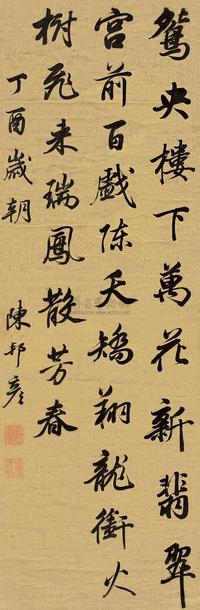 鴛央樓下萬花新翡翠
宮前百戲陳夭矯翔龍銜火
樹飛来瑞鳳散芳春
丁酉歲朝
陳邦彥